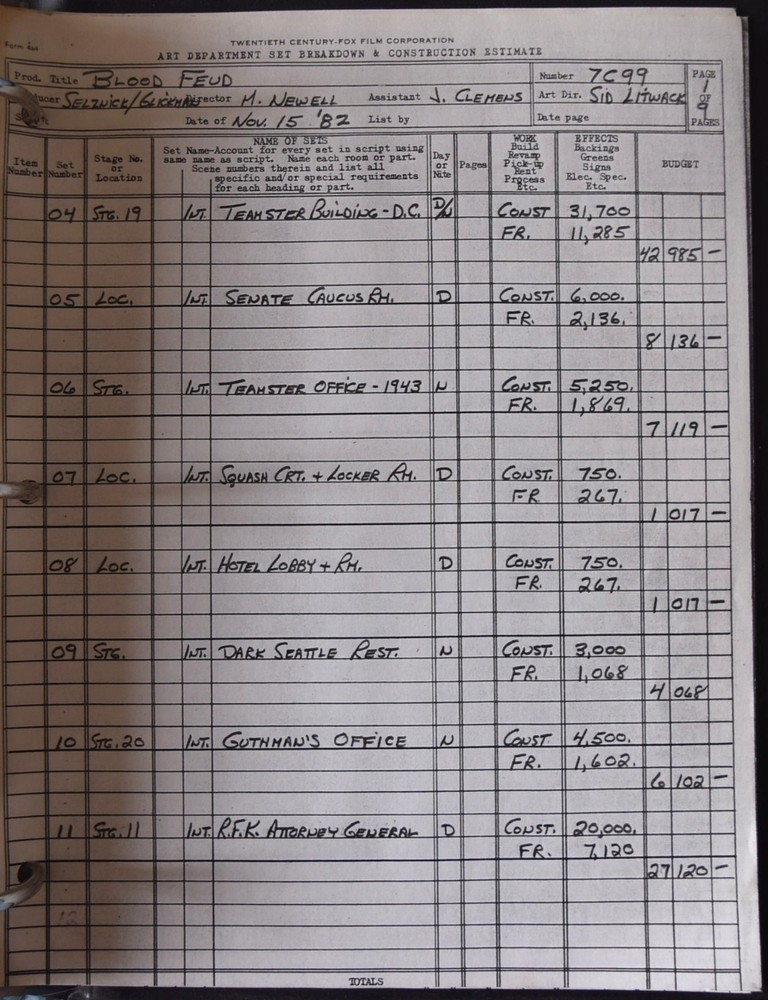 Form 466
TWENTIETH CENTURY-FOX FILM CORPORATION
ART DEPARTMENT SET BREAKDOWN & CONSTRUCTION ESTIMATE
Prod. Title BLOOD FEUD Number 7C99 PAGE 1 OF 9 PAGES
SELZNICK/GLICKMAN Director M. NEWELL Assistant J. CLEMENS Art Dir. SID LITWACK
Date of NOV. 15 '82 List by Date page
Item Number Set Number Stage No. or Location NAME OF SETS Day or Nite Pages WORK EFFECTS BUDGET
Set Name-Account for every set in script using
same name as script. Name each room or part.
Scene numbers therein and list all
specific and/or special requirements
for each heading or part.
Build Revamp Pick-up Rent Process Etc.
Backings Greens Signs Elec. Spec. Etc.
04 STG. 19 INT. TEAMSTER BUILDING - D.C. D/N CONST 31,700
FR. 11,285
42 985 -
05 LOC. INT. SENATE CAUCUS RM. D CONST. 6,000.
FR. 2,136.
8 136 -
06 STG. INT. TEAMSTER OFFICE - 1943 N CONST. 5,250.
FR. 1,869.
7 119 -
07 LOC. INT. SQUASH CRT. + LOCKER RM. D CONST. 750.
FR 267.
1 017 -
08 LOC. INT. HOTEL LOBBY + RM. D CONST. 750.
FR. 267.
1 017 -
09 STG. INT. DARK SEATTLE REST. N CONST. 3,000
FR. 1,068
4 068
10 STG. 20 INT. GUTHMAN'S OFFICE N CONST. 4,500.
FR. 1,602.
6 102 -
11 STG. 11 INT. R.F.K. ATTORNEY GENERAL D CONST. 20,000.
FR. 7,120
27 120 -
12
TOTALS